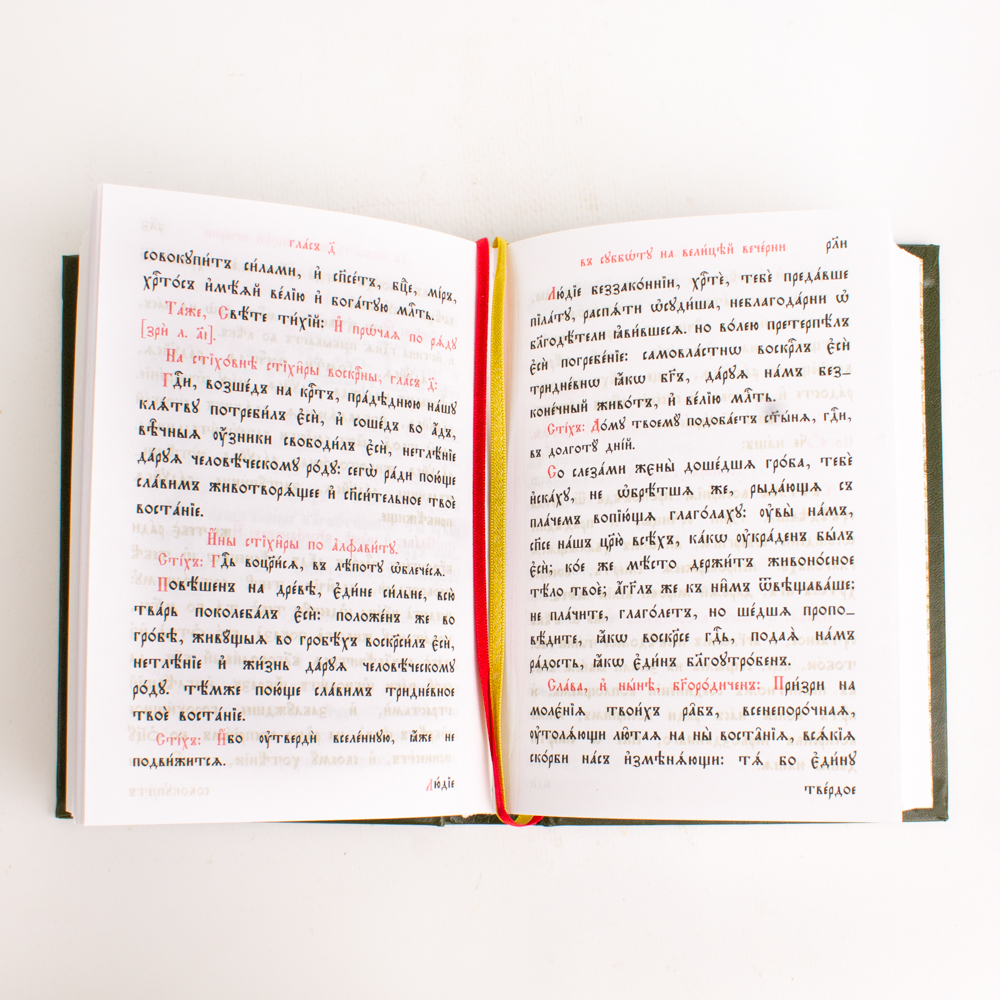 гла́съ д҃
совокꙋпи́тъ си́лами, и҆ сп҃се́тъ, бц҃е, мі́ръ,
хрⷭ҇то́съ и҆мѣ́ѧй ве́лїю и҆ бога́тꙋю млⷭ҇ть.
Та́же, Свѣ́те ти́хїй: И҆ прѡ́чаѧ по рѧ́дꙋ
[зрѝ л. а҃і].
На стїхо́внѣ стїхи̑ры воскрⷭ҇ны, гла́съ д҃:
Гдⷭ҇и, возше́дъ на крⷭ҇тъ, пра́дѣднюю на́шꙋ
клѧ́твꙋ потреби́лъ є҆сѝ, и҆ соше́дъ во а҆́дъ,
вѣ̑чныѧ ᲂу҆́зники свободи́лъ є҆сѝ, нетлѣ́нїе
да́рꙋѧ человѣ́ческомꙋ ро́дꙋ: сегѡ̀ ра́ди пою́ще
сла́вимъ животворѧ́щее и҆ сп҃си́тельное твоѐ
воста́нїе.
И҆́ны стїхи̑ры по а҆лфави́тꙋ.
Сті́хъ: Гдⷭ҇ь воцр҃и́сѧ, въ лѣ́потꙋ ѡ҆блече́сѧ.
Повѣ́шенъ на дре́вѣ, є҆ди́не си́льне, всю̀
тва́рь поколеба́лъ є҆сѝ: положе́нъ же во
гро́бѣ, живꙋ́щыѧ во гробѣ́хъ воскр҃си́лъ є҆сѝ,
нетлѣ́нїе и҆ жи́знь да́рꙋѧ человѣ́ческомꙋ
ро́дꙋ. тѣ́мже пою́ще сла́вимъ тридне́вное
твоѐ воста́нїе.
Сті́хъ: И҆́бо ᲂу҆твердѝ вселе́ннꙋю, ꙗ҆́же не
подви́житсѧ.
Лю́дїе
въ сꙋббѡ́тꙋ на вели́цѣй вече́рни
рл҃и
Лю́дїе беззако́ннїи, хрⷭ҇тѐ, тебѐ преда́вше
піла́тꙋ, распѧ́ти ѡ҆сꙋди́ша, неблагода́рни ѡ҆
бл҃годѣ́тели ꙗ҆ви́вшесѧ. но во́лею претерпѣ́лъ
є҆сѝ погребе́нїе: самовла́стнѡ воскрⷭ҇лъ є҆сѝ
тридне́внѡ ꙗ҆́кѡ бг҃ъ, да́рꙋѧ на́мъ без_
коне́чный живо́тъ, и҆ ве́лїю млⷭ҇ть.
Сті́хъ: До́мꙋ твоемꙋ̀ подоба́етъ ст҃ы́нѧ, гдⷭ҇и,
въ долготꙋ̀ дні́й.
Со слеза́ми жєны̀ доше́дшѧ гро́ба, тебѐ
и҆ска́хꙋ, не ѡ҆брѣ́тшѧ же, рыда́ющѧ съ
пла́чемъ вопїю́щѧ глаго́лахꙋ: ᲂу҆вы̀ на́мъ,
сп҃се на́шъ цр҃ю̀ всѣ́хъ, ка́кѡ ᲂу҆кра́денъ бы́лъ
є҆сѝ; ко́е же мѣ́сто держи́тъ живоно́сное
тѣ́ло твоѐ; а҆́гг҃лъ же къ ни̑мъ ѿвѣщава́ше:
не пла́чите, глаго́летъ, но ше́дшѧ пропо_
вѣ́дите, ꙗ҆́кѡ воскрⷭ҇се гдⷭ҇ь, подаѧ̀ на́мъ
ра́дость, ꙗ҆́кѡ є҆ди́нъ бл҃гоꙋтро́бенъ.
Сла́ва, и҆ ны́нѣ, бг҃оро́диченъ: При́зри на
молє́нїѧ твои́хъ ра̑бъ, всенепоро́чнаѧ,
ᲂу҆толѧ́ющи лю̑таѧ на ны̀ воста̑нїѧ, всѧ́кїѧ
ско́рби на́съ и҆змѣнѧ́ющи: тѧ́ бо є҆ди́нꙋ
тве́рдое